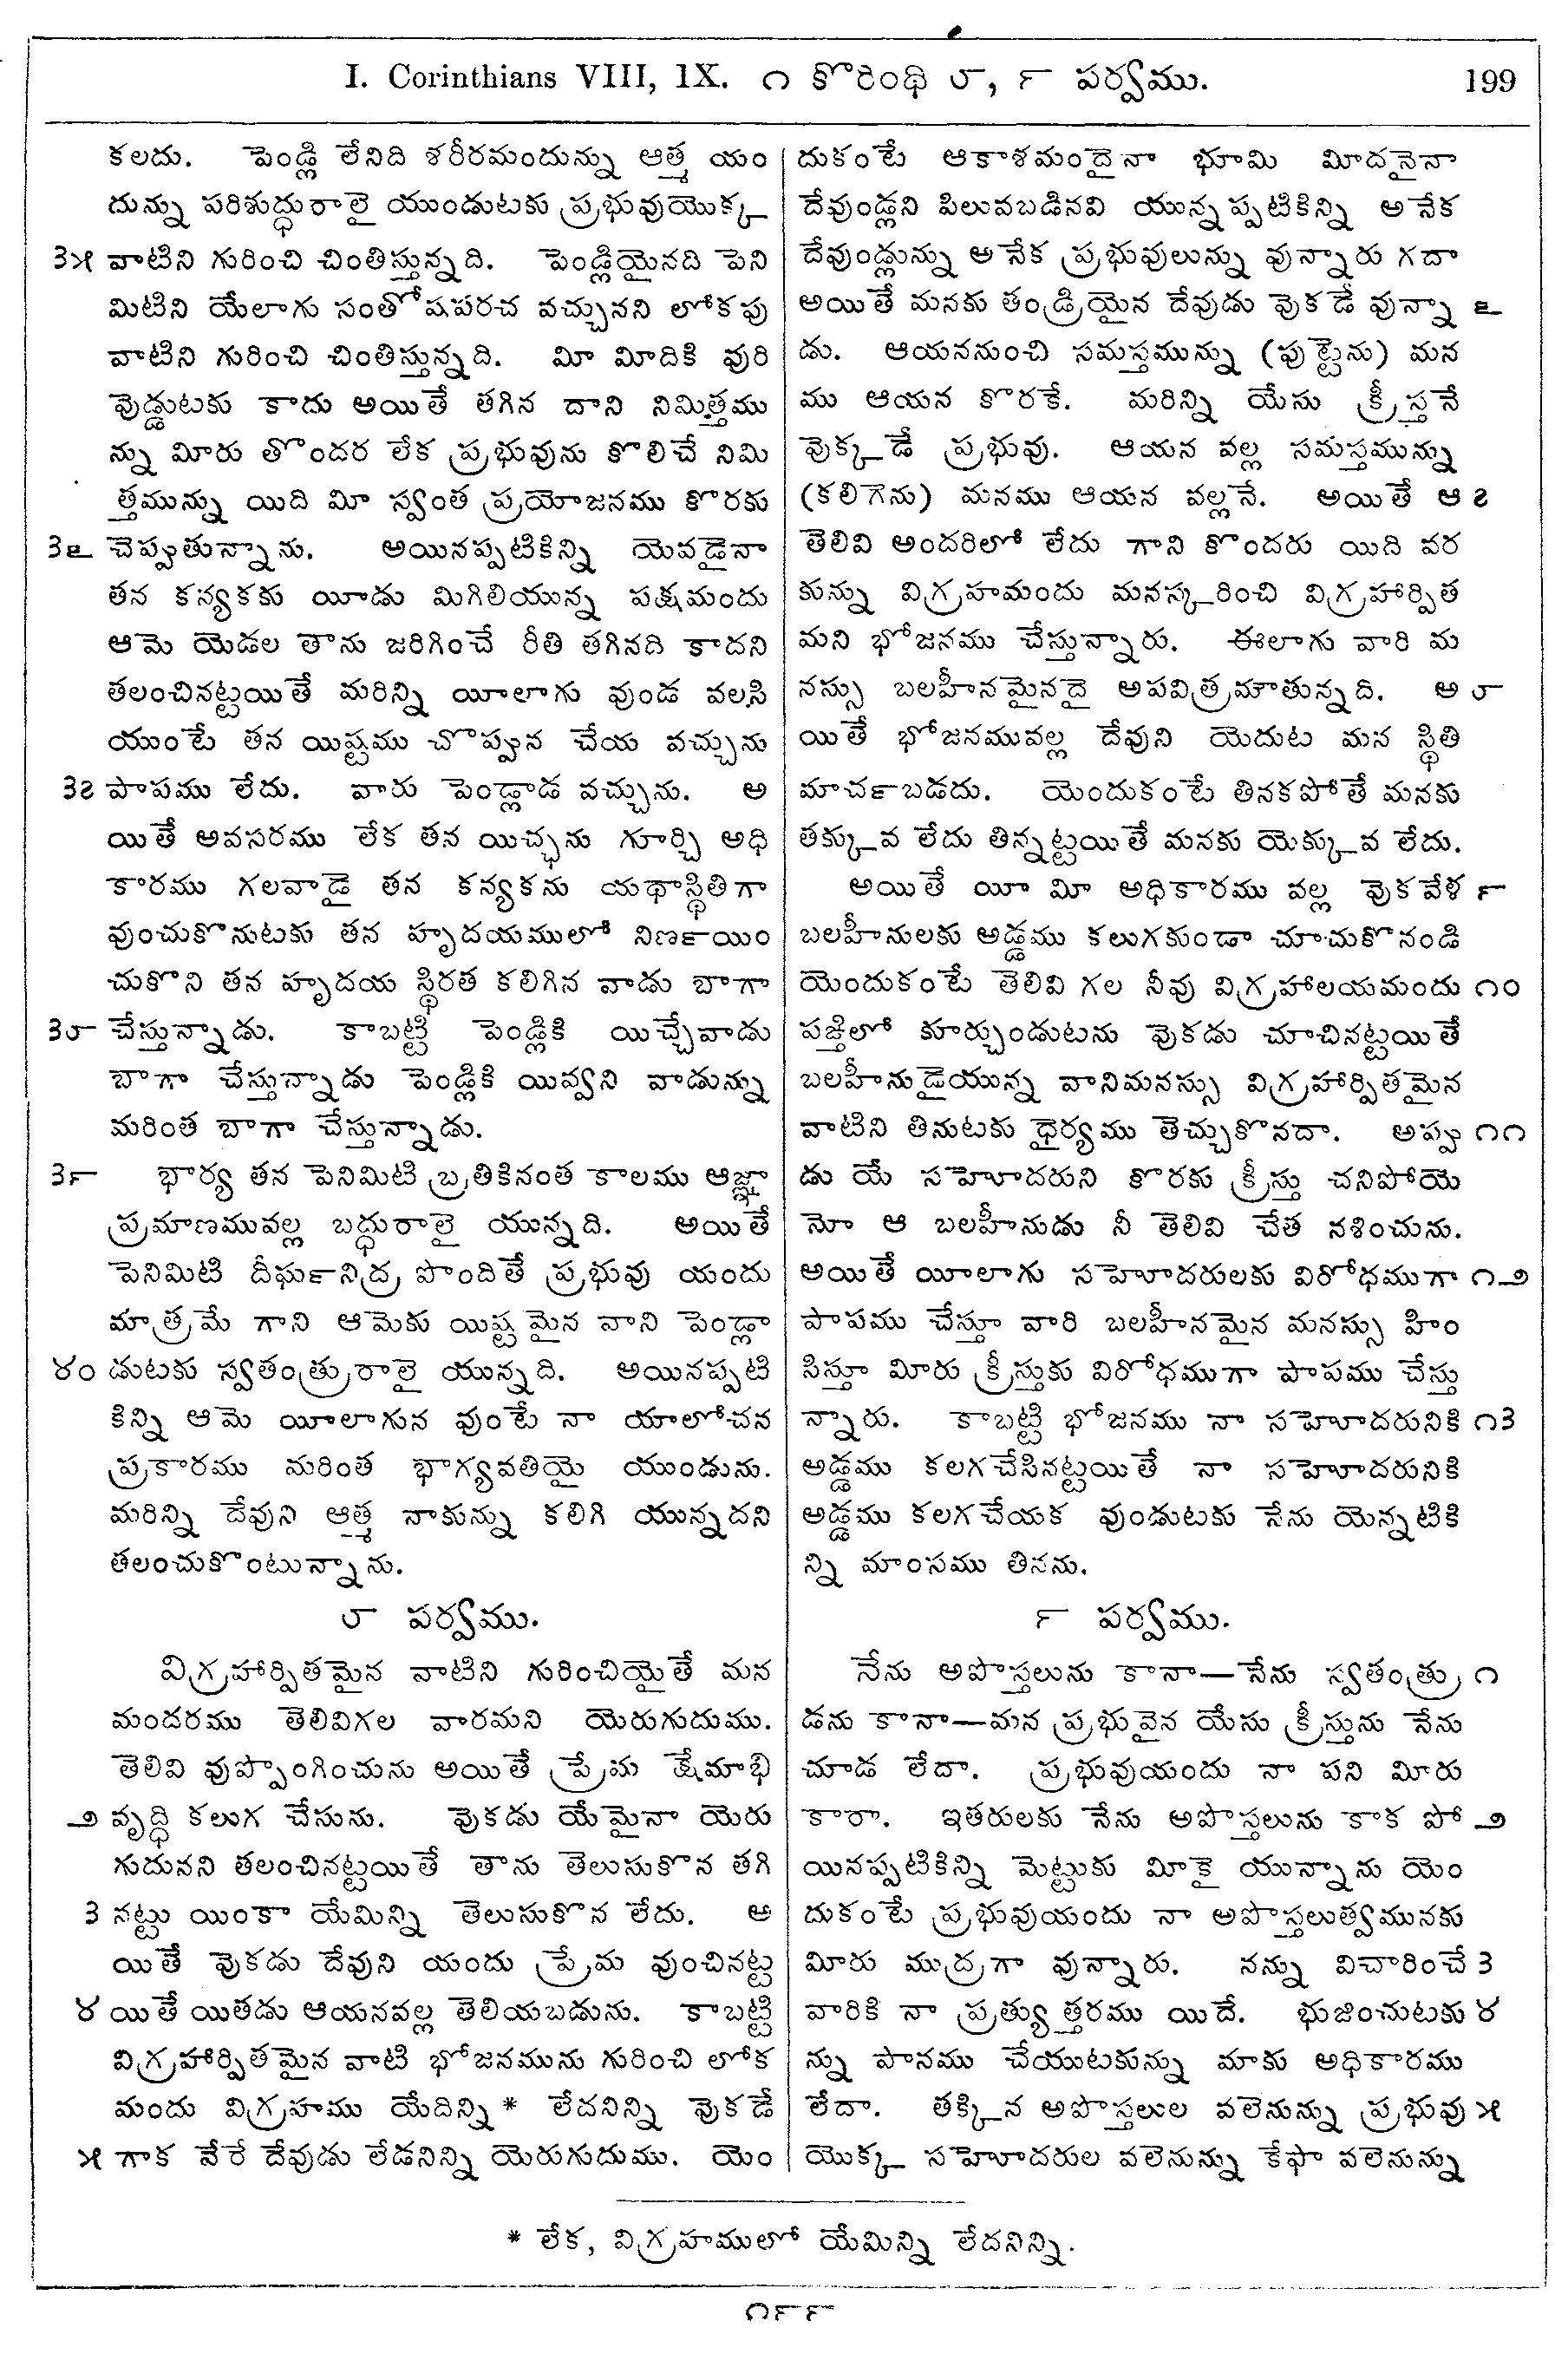 I. Corinthians VIII, IX. ౧ కొరింథి ౮, ౯ పర్వము. 199
కలదు. పెండ్లి లేనిది శరీరమందున్ను ఆత్మ యం
దున్ను పరిశుద్ధురాలై యుండుటకు ప్రభువుయొక్క
౩౫ వాటిని గురించి చింతిస్తున్నది. పెండ్లియైనది పెని
మిటిని యేలాగు సంతోషపరచ వచ్చునని లోకపు
వాటిని గురించి చింతిస్తున్నది. మీ మీదికి వురి
వొడ్డుటకు కాదు అయితే తగిన దాని నిమిత్తము
న్ను మీరు తొందర లేక ప్రభువును కొలిచే నిమి
త్తమున్ను యిది మీ స్వంత ప్రయోజనము కొరకు
౩౬ చెప్పుతున్నాను. అయినప్పటికిన్ని యెవడైనా
తన కన్యకకు యీడు మిగిలియున్న పక్షమందు
ఆమె యెడల తాను జరిగించే రీతి తగినది కాదని
తలంచినట్టయితే మరిన్ని యీలాగు వుండ వలసి
యుంటే తన యిష్టము చొప్పున చేయ వచ్చును
౩౭ పాపము లేదు. వారు పెండ్లాడ వచ్చును. అ
యితే అవసరము లేక తన యిచ్ఛను గూర్చి అధి
కారము గలవాడై తన కన్యకను యథాస్థితిగా
వుంచుకొనుటకు తన హృదయములో నిణ౯యిం
చుకొని తన హృదయ స్థిరత కలిగిన వాడు బాగా
౩౮ చేస్తున్నాడు. కాబట్టి పెండ్లికి యిచ్చేవాడు
బాగా చేస్తున్నాడు పెండ్లికి యివ్వని వాడున్ను
మరింత బాగా చేస్తున్నాడు.
౩౯ భార్య తన పెనిమిటి బ్రతికినంత కాలము ఆజ్ఞా
ప్రమాణమువల్ల బద్ధురాలై యున్నది. అయితే
పెనిమిటి దీఘ౯నిద్ర పొందితే ప్రభువు యందు
మాత్రమే గాని ఆమెకు యిష్టమైన వాని పెండ్లా
౪౦ డుటకు స్వతంత్రురాలై యున్నది. అయినప్పటి
కిన్ని ఆమె యీలాగున వుంటే నా యాలోచన
ప్రకారము మరింత భాగ్యవతియై యుండును.
మరిన్ని దేవుని ఆత్మ నాకున్ను కలిగి యున్నదని
తలంచుకొంటున్నాను.
౮ పర్వము.
విగ్రహార్పితమైన వాటిని గురించియైతే మన
మందరము తెలివిగల వారమని యెరుగుదుము.
తెలివి వుప్పొంగించును అయితే ప్రేమ క్షేమాభి
౨ వృద్ధి కలుగ చేసును. వొకడు యేమైనా యెరు
గుదునని తలంచినట్టయితే తాను తెలుసుకొన తగి
౩ నట్టు యింకా యేమిన్ని తెలుసుకొన లేదు. అ
యితే వొకడు దేవుని యందు ప్రేమ వుంచినట్ట
౪ యితే యితడు ఆయనవల్ల తెలియబడును. కాబట్టి
విగ్రహార్పితమైన వాటి భోజనమును గురించి లోక
మందు విగ్రహము యేదిన్ని * లేదనిన్ని వొకడే
౫ గాక వేరే దేవుడు లేడనిన్ని యెరుగుదుము. యెం
దుకంటే ఆకాశమందైనా భూమి మీదనైనా
దేవుండ్లని పిలువబడినవి యున్నప్పటికిన్ని అనేక
దేవుండ్లున్ను అనేక ప్రభువులున్ను వున్నారు గదా
అయితే మనకు తండ్రియైన దేవుడు వొకడే వున్నా ౬
డు. ఆయననుంచి సమస్తమున్ను (పుట్టెను) మన
ము ఆయన కొరకే. మరిన్ని యేసు క్రీస్తనే
వొక్కడే ప్రభువు. ఆయన వల్ల సమస్తమున్ను
(కలిగెను) మనము ఆయన వల్లనే. అయితే ఆ ౭
తెలివి అందరిలో లేదు గాని కొందరు యిది వర
కున్ను విగ్రహమందు మనస్కరించి విగ్రహార్పిత
మని భోజనము చేస్తున్నారు. ఈలాగు వారి మ
నస్సు బలహీనమైనదై అపవిత్రమౌతున్నది. అ ౮
యితే భోజనమువల్ల దేవుని యెదుట మన స్థితి
మాచ౯బడదు. యెందుకంటే తినకపోతే మనకు
తక్కువ లేదు తిన్నట్టయితే మనకు యెక్కువ లేదు.
అయితే యీ మీ అధికారము వల్ల వొకవేళ ౯
బలహీనులకు అడ్డము కలుగకుండా చూచుకొనండి
యెందుకంటే తెలివి గల నీవు విగ్రహాలయమందు ౧౦
పఙ్తిలో కూర్చుండుటను వొకడు చూచినట్టయితే
బలహీనుడైయున్న వానిమనస్సు విగ్రహార్పితమైన
వాటిని తినుటకు ధైర్యము తెచ్చుకొనదా. అప్పు ౧౧
డు యే సహెూదరుని కొరకు క్రీస్తు చనిపోయె
నో ఆ బలహీనుడు నీ తెలివి చేత నశించును.
అయితే యీలాగు సహెూదరులకు విరోధముగా ౧౨
పాపము చేస్తూ వారి బలహీనమైన మనస్సు హిం
సిస్తూ మీరు క్రీస్తుకు విరోధముగా పాపము చేస్తు
న్నారు. కాబట్టి భోజనము నా సహెూదరునికి ౧౩
అడ్డము కలగచేసినట్టయితే నా సహెూదరునికి
అడ్డము కలగచేయక వుండుటకు నేను యెన్నటికి
న్ని మాంసము తినను.
౯ పర్వము.
నేను అపొస్తలును కానా—నేను స్వతంత్రు ౧
డను కానా—మన ప్రభువైన యేసు క్రీస్తును నేను
చూడ లేదా. ప్రభువుయందు నా పని మీరు
కారా. ఇతరులకు నేను అపొస్తలును కాక పో ౨
యినప్పటికిన్ని మెట్టుకు మీకై యున్నాను యెం
దుకంటే ప్రభువుయందు నా అపొస్తలుత్వమునకు
మీరు ముద్రగా వున్నారు. నన్ను విచారించే ౩
వారికి నా ప్రత్యుత్తరము యిదే. భుజించుటకు ౪
న్ను పానము చేయుటకున్ను మాకు అధికారము
లేదా. తక్కిన అపొస్తలుల వలెనున్ను ప్రభువు ౫
యొక్క సహెూదరుల వలెనున్ను కేఫా వలెనున్ను
* లేక, విగ్రహములో యేమిన్ని లేదనిన్ని.
౧౯౯